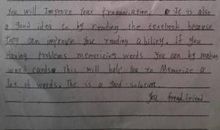 You will improve your pronunciation. It is also
a good idea is by reading the textbook because
you can improve you reading ability. If you
having problems memorizing words you can by making
word cards. This will help you to memorize a
lot of words. This is a good solution.
your friend